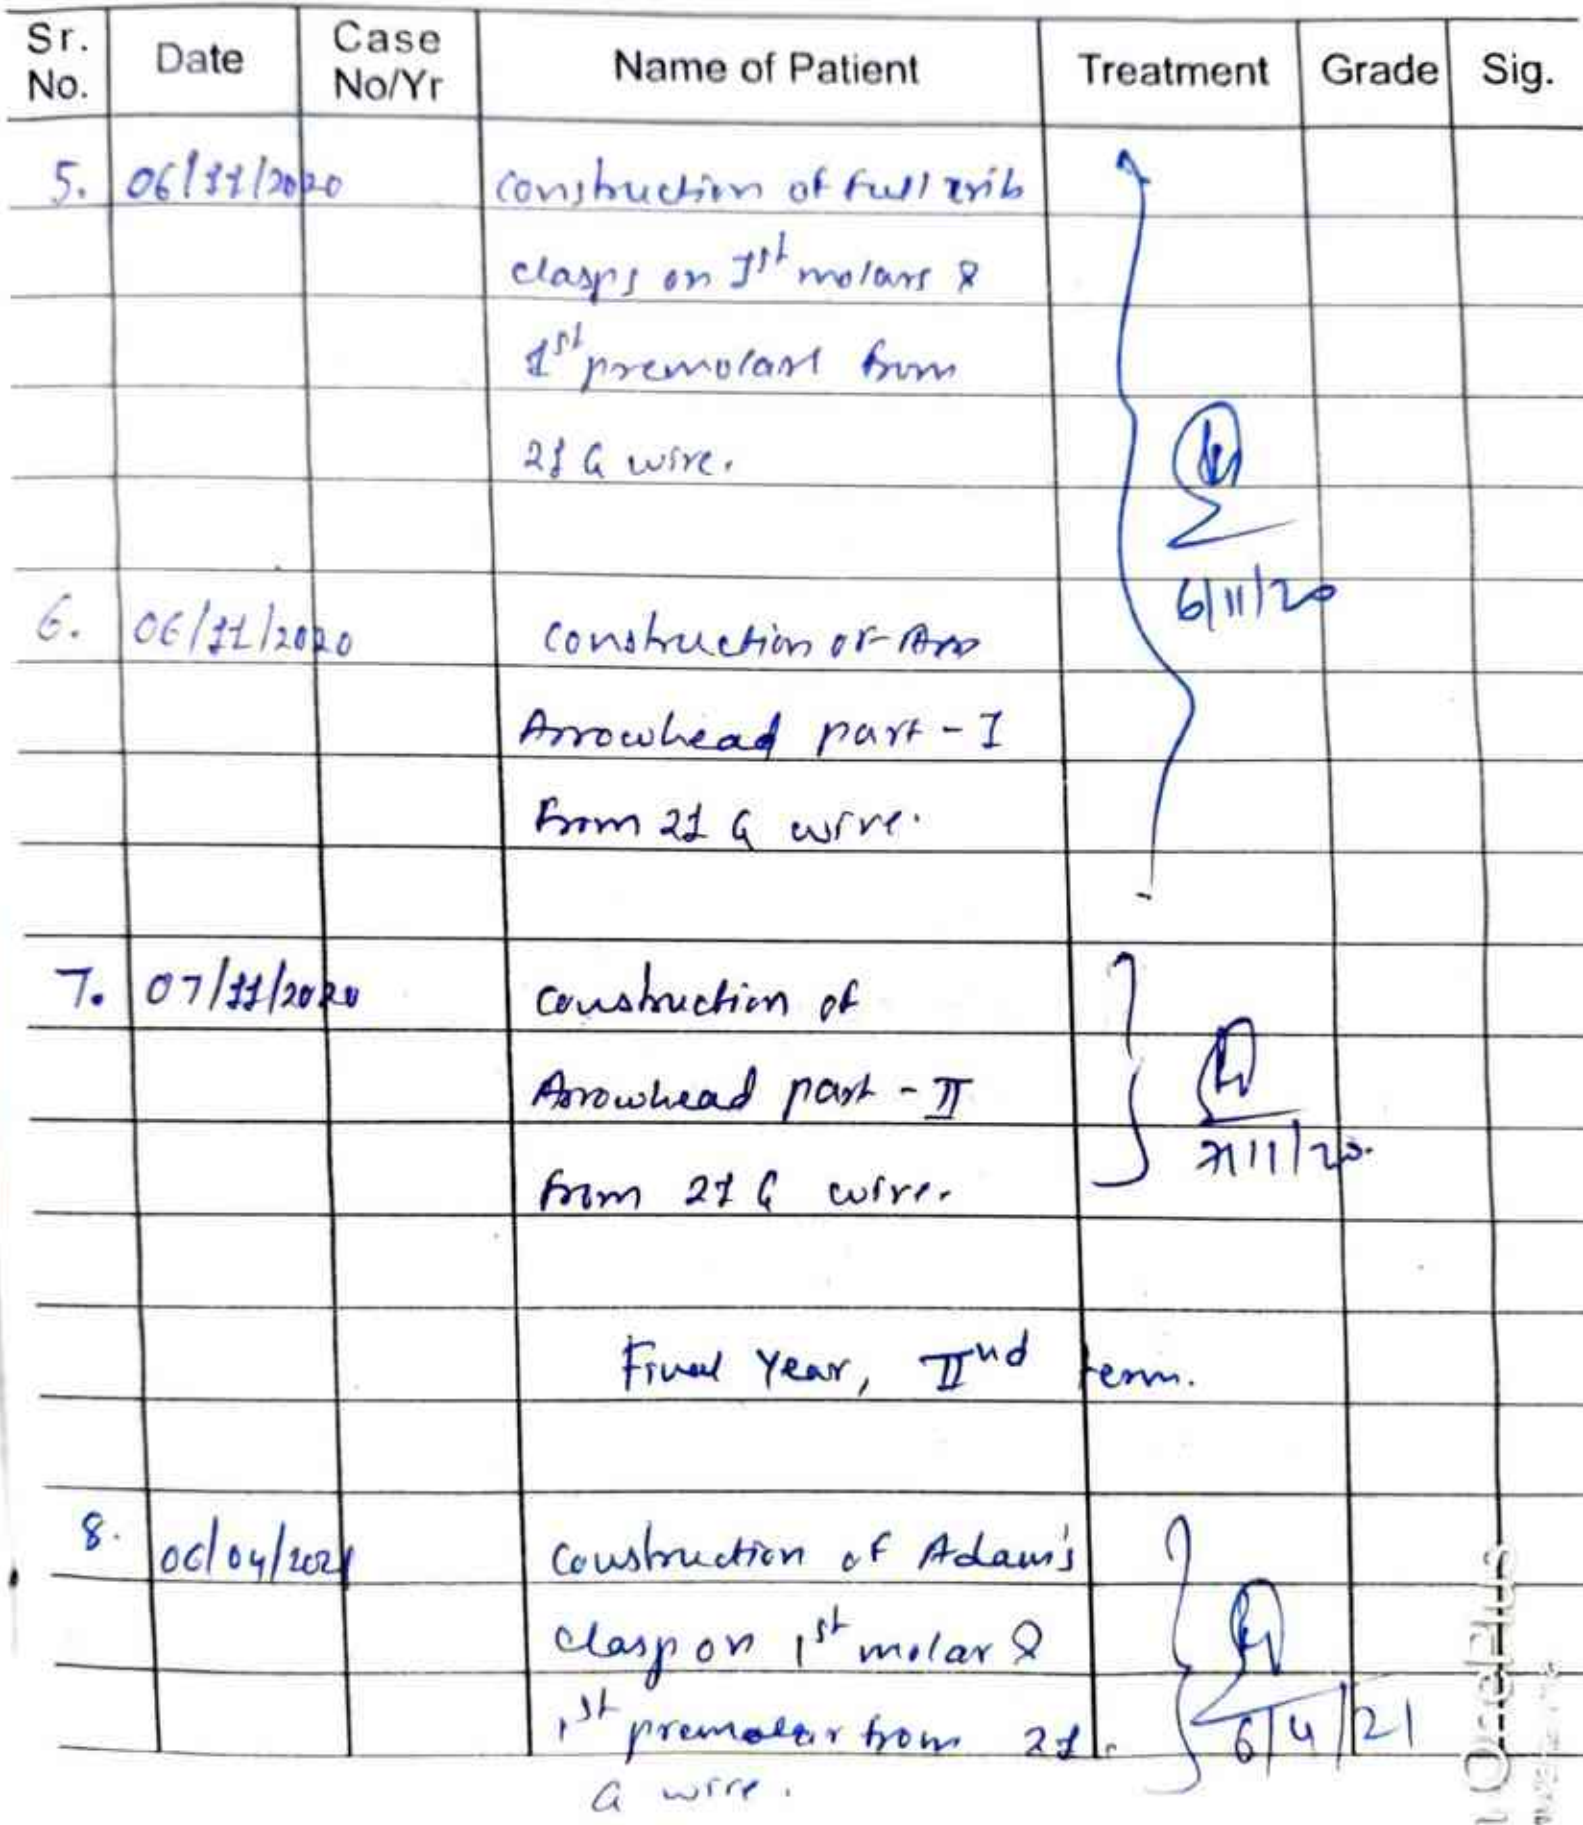 Sr. No. Date Case No/Yr Name of Patient Treatment Grade Sig.
5. 06/11/2020 Construction of full crib
clasps on 1st molars &
1st premolars from
21 G wire.
6/11/20
6. 06/11/2020 Construction of Arro
Arrowhead part - I
from 21 G wire.
7. 07/11/2020 Construction of
Arrowhead part - II
from 21 G wire.
7/11/20.
Final Year, IInd term.
8. 06/04/2021 Construction of Adam's
clasp on 1st molar &
1st premolar from 21
G wire.
6/4/21